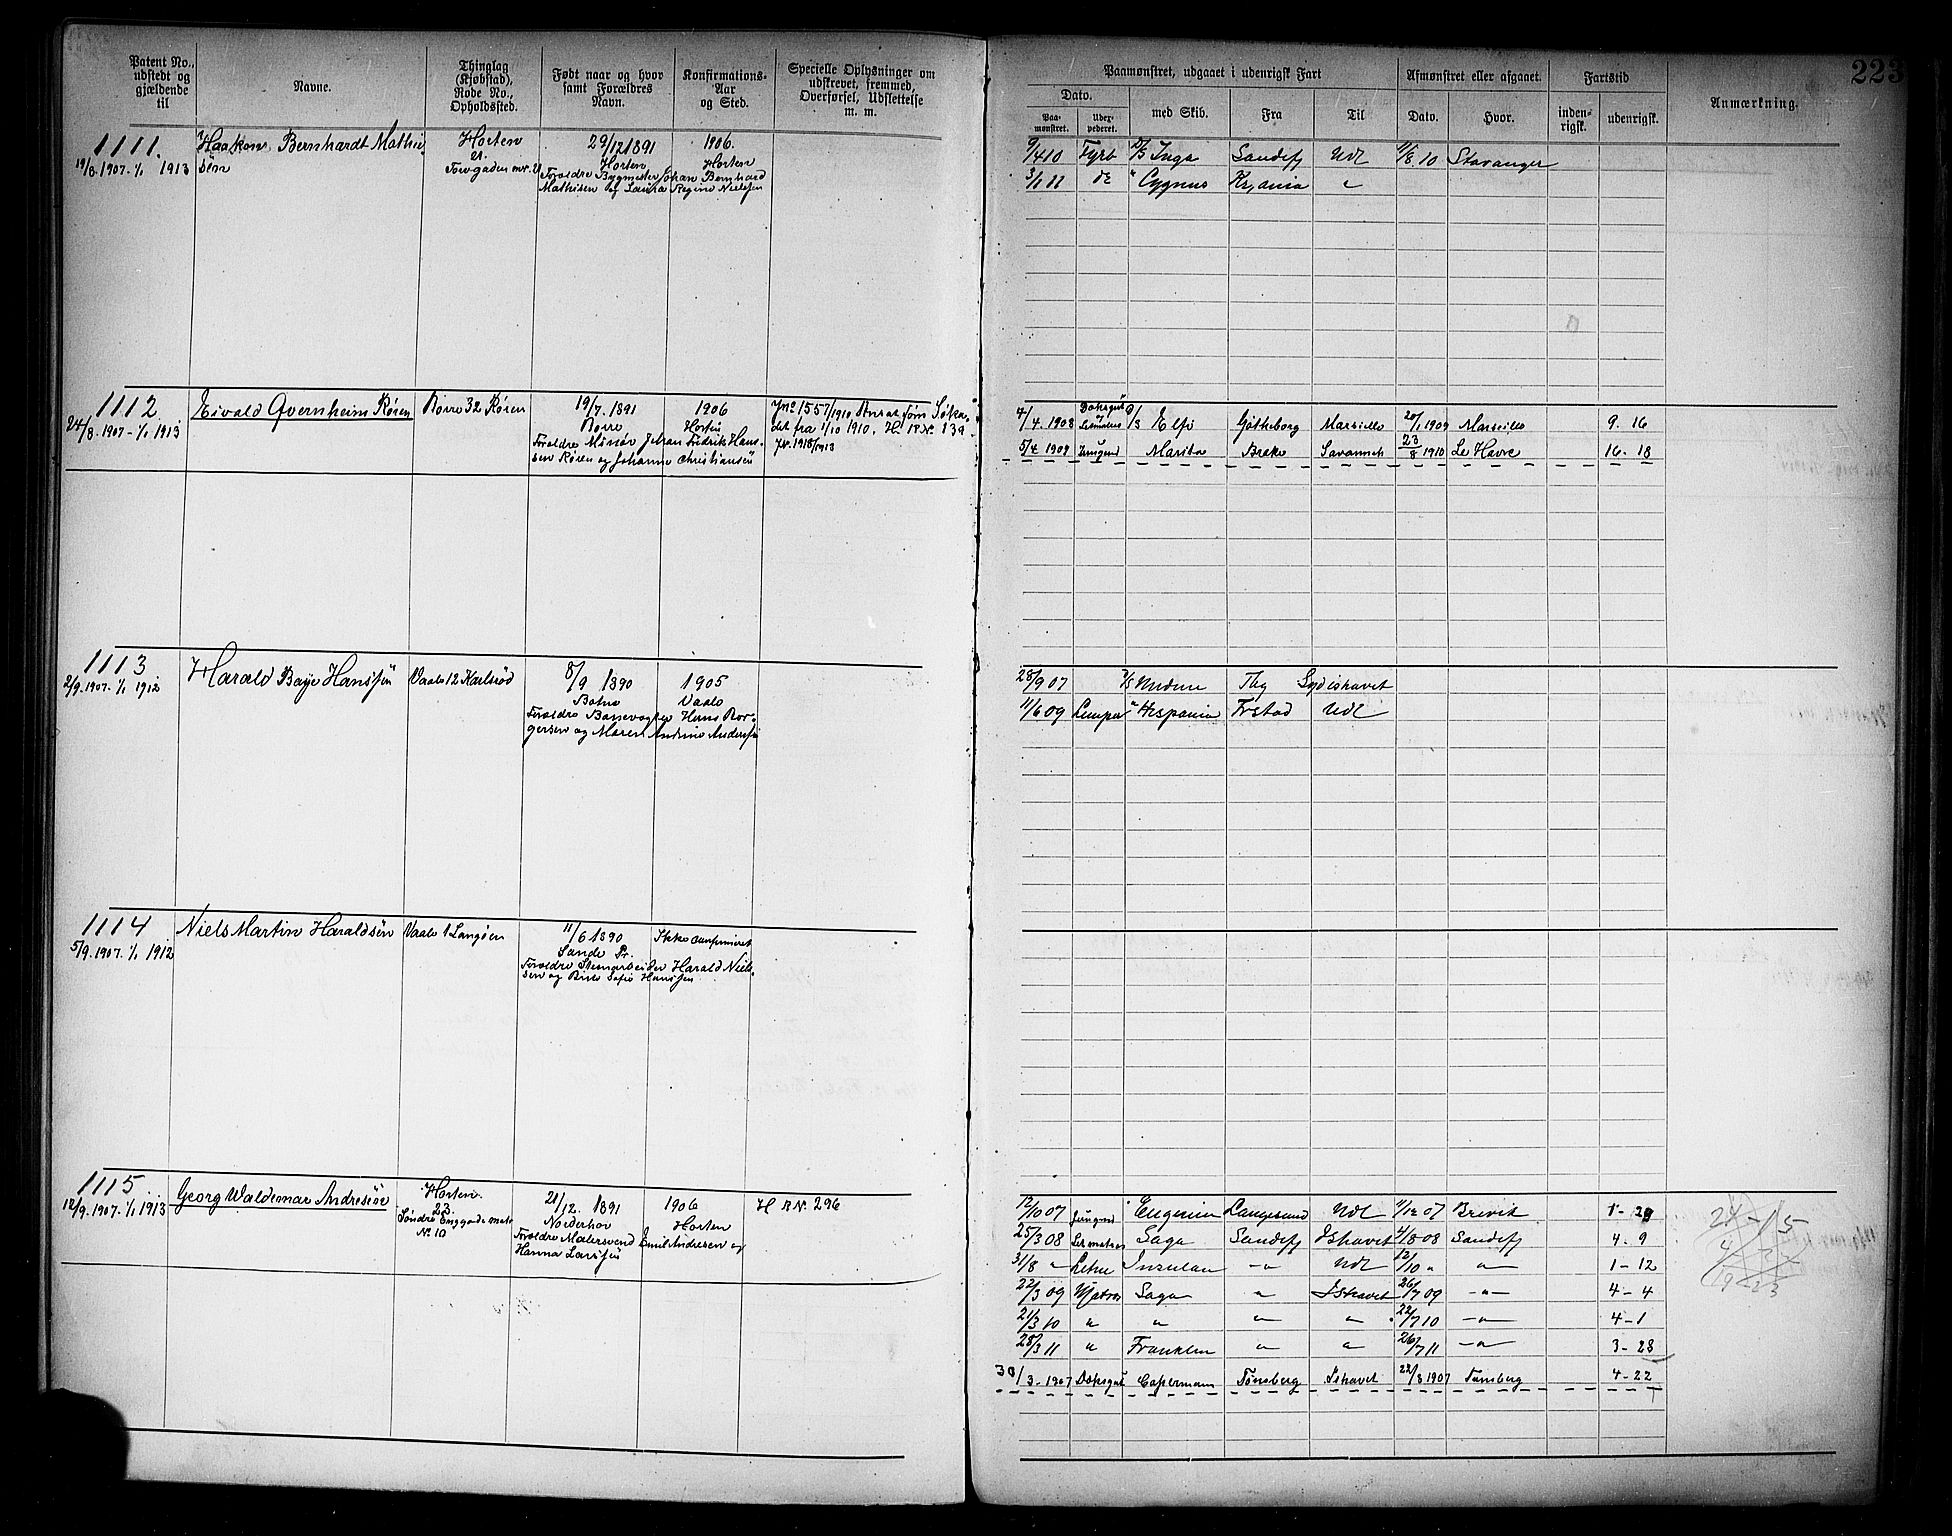 223
Patent No., udstedt og gjældende til
Navne.
Thinglag (Kjøbstad), Rode No., Opholdssted.
Født naar og hvor samt Forældres Navn.
Konfirmations-Aar og Sted.
Specielle Oplysninger om udskrevet, fremmed, Overførsel, Udslettelse m. m.
Paamønstret, udgaaet i udenrigsk Fart
Afmønstret eller afgaaet.
Fartstid
Anmærkning.
Dato.
med Skib.
Fra
Til
Dato.
Hvor.
inden-rigsk.
udenrigsk.
Paa-mønstret.
1111.
19/8. 1907. 1/1 1913
Haakon Bernhardt Mathi-
sen
Horten
29/12 1891
Horten
Forældre Bygmester Johan Bernhard
Mathisen og Laura Regine Nielsen
1906.
Horten
9/4 10 Fyrb Inga Sandefj Udl 4/8 10 Stavanger
3/1 11 do " Cygnus Kr.ania "
1112
24/8. 1907 - 1/1 1913
Eivald Qvernheim Røren
Borre 32 Røren
19/7. 1891
Borre
Forældre Minør Johan Fredrik Han-
sen Røren og Johanne Christiansen
1906
Horten
Jno 1557/1910 Ansat som Søka-
det fra 1/10 1910.
Jr. 1918/1913
4/4. 1908 Elfi Gøtheborg Marseille 20/1 1909 Marseille 9. 16
5/4 1909 Jungmd Marita Brake Savannah 23/8 1910 Le Havre 16 - 18
1113
2/9. 1907. 1/1 1912
Harald Baye Hansen
Vaale 12 Karlsrød
8/9 1890
Botne
Forældre Banevogter Hans Bor-
gersen og Maren Andrine Andersen
1905
Vaale
28/9 07 Tbg Sydishavet
11/6 09 Lemper " Hispania Frstad Udl
1114
5/9. 1907. 1/1 1912
Niels Martin Haraldsen
Vaale 1 Langøen
11/6 1890
Sande Pr.
Forældre Stenarbeider Harald Niel-
sen og Sofie Hansen
Ikke confirmeret
1115
12/9. 1907. 1/1 1913
Georg Waldemar Andresen
Horten
23.
Søndre Enggade matr
No. 10
21/12. 1891
Norderhov
Forældre Malersvend Emil Andresen og
Hanna Larsen
1906
Horten
H R No. 296
12/10 07 Jungmd Eugenien Langesund Udl 4/12 07 Brevik 1 - 29
25/3 08 Letmatros Saga Sandefj Ishavet 4/8 08 Sandefj 4 - 9
31/8 " Letm Insulan - " - Udl 12/10 " " 1 - 12
22/3 09 Matros Saga " Ishavet 26/7 09 - " - 4 - 4
21/3 10 " " " " 22/7 10 - " - 4 - 1
28/3 11 " Franklin " " 26/7 11 - " - 3 - 28
30/3 - 1907 Dæksgut Capermann Tønsberg Ishavet 22/8 1907 Tønsberg 4 - 22
24 - 15
19 - 23